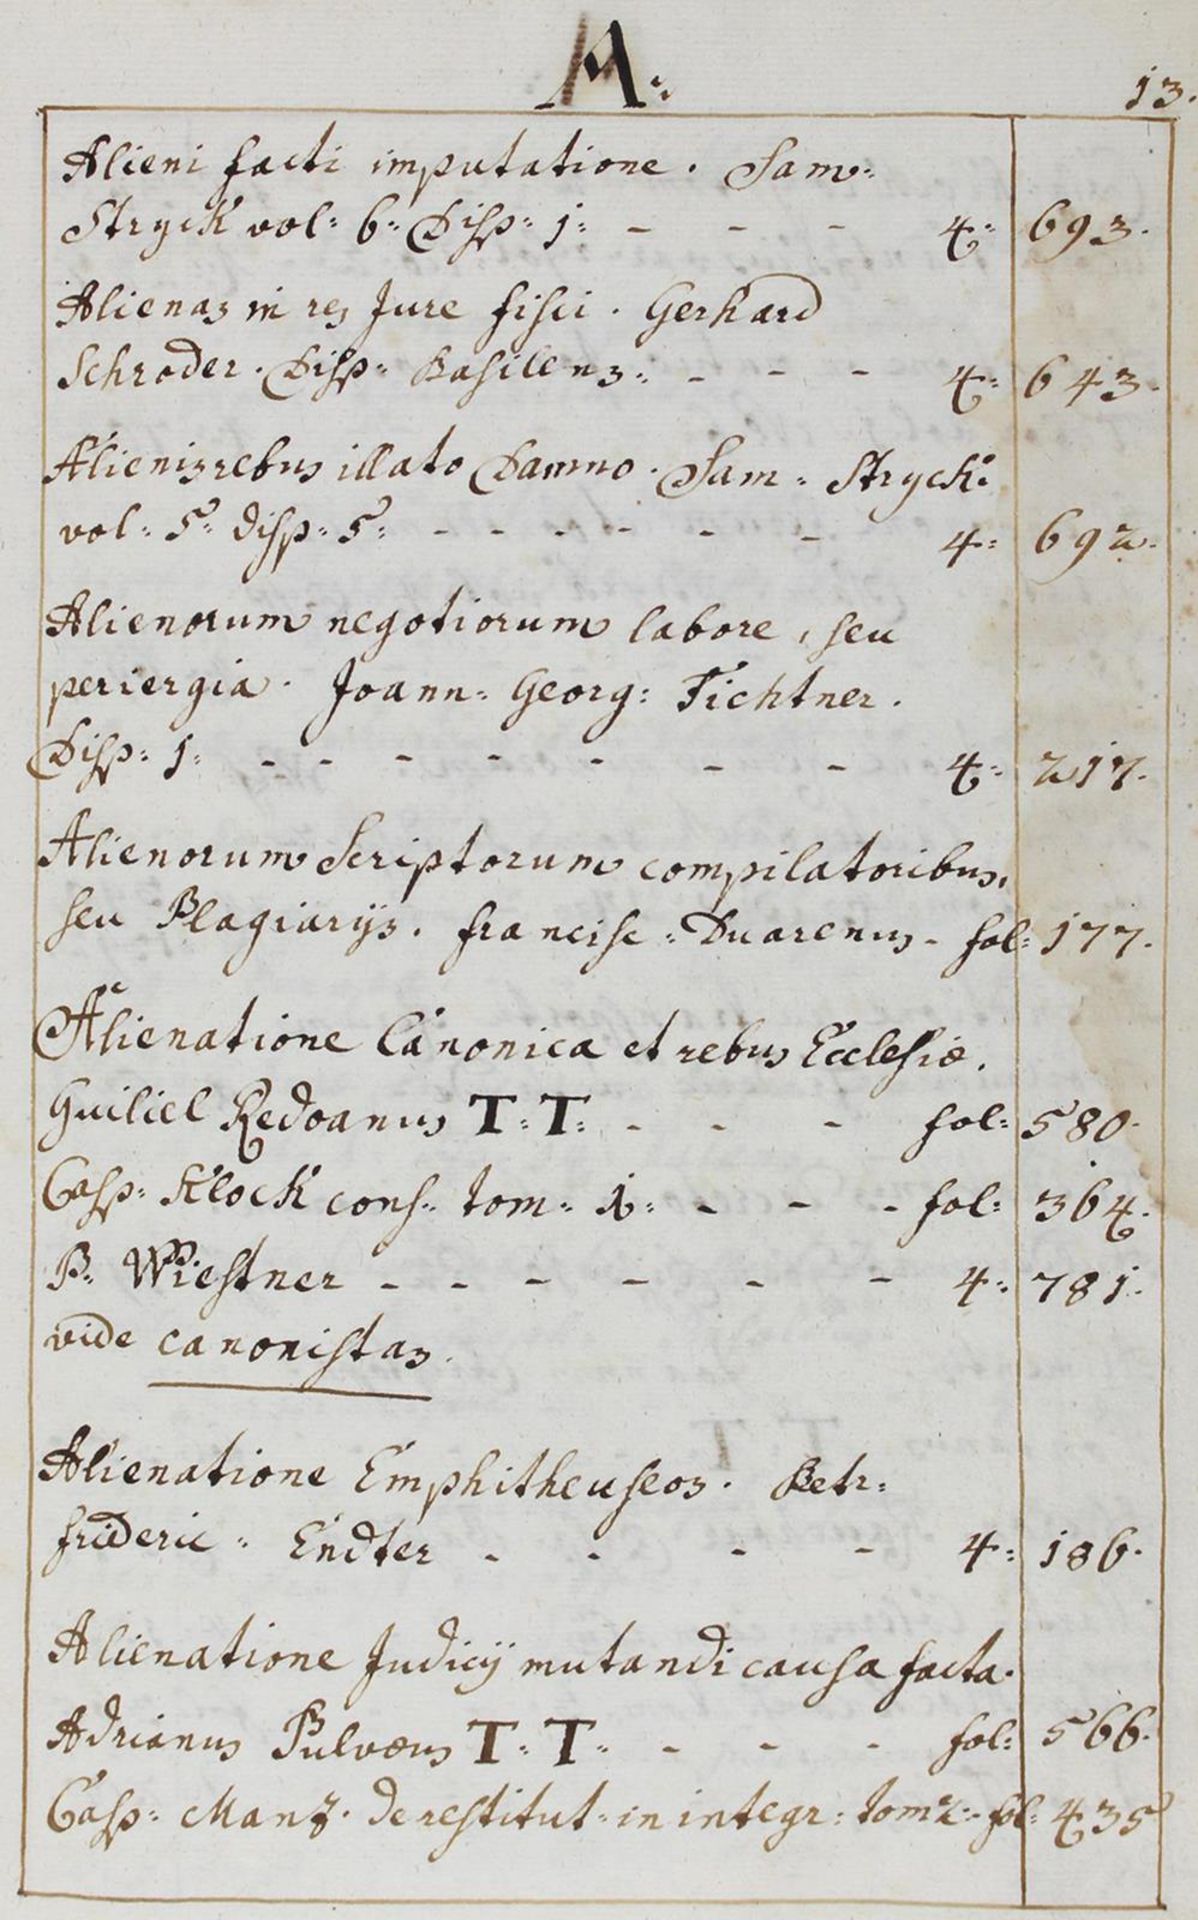 A:
13.
Alieni facti imputatione. Sam:
Stryck vol: 6: Disp: 1: - - - 4: 693.
Alienas in res Jure fisci. Gerhard
Schroder. Disp: Basilens: - - - 4: 643.
Alienis rebus illato Damno. Sam: Stryck:
vol: 5: disp: 5: - - - - - - 4: 692.
Alienorum negotiorum labore, seu
periergia. Joann: Georg: Fichtner.
Disp: 1: - - - - - - - 4: 217.
Alienorum Scriptorum compilatoribus,
seu Plagiarijs. francisc: Duarenus - fol: 177.
Alienatione Canonica et rebus Ecclesiæ.
Guiliel Redoanus T: T: - - - fol: 580.
Casp: Klock cons: tom: 1: - - - fol: 364.
P: Wiestner - - - - - - 4: 781.
vide canonistas.
Alienatione Emphitheuseos. Petr:
frideric: Endter - - - - 4: 186.
Alienatione Judicij mutandi causa facta.
Adrianus Pulvæus T: T: - - - fol: 566.
Casp: Manz. de restitut: in integr: tom 2: - fol: 435